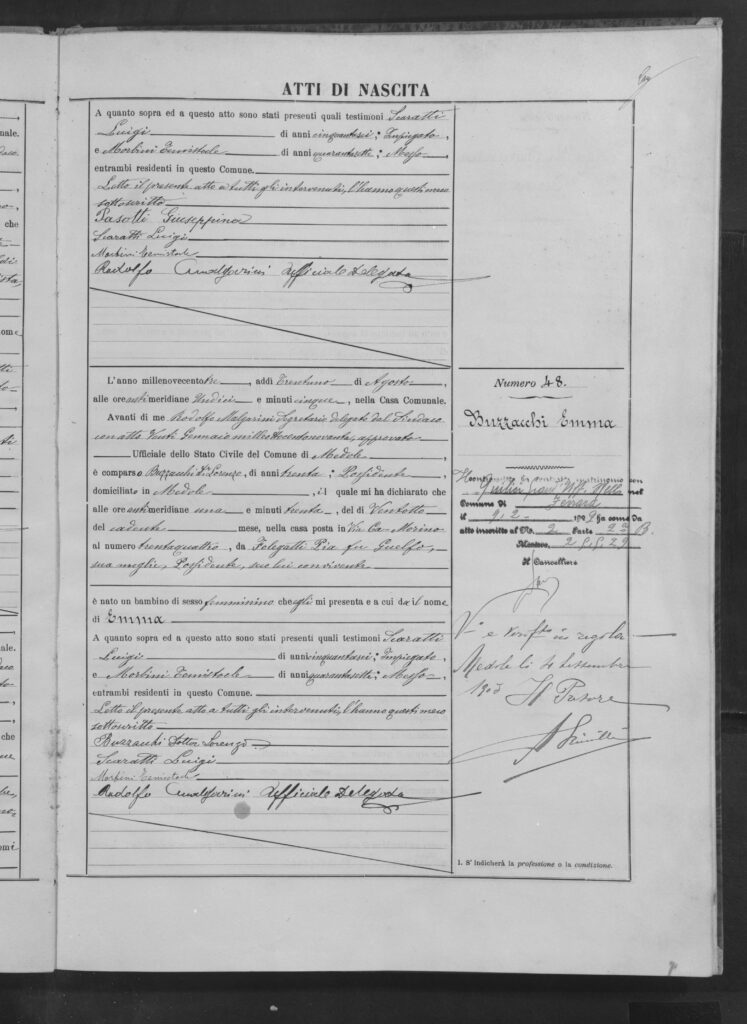 ATTI DI NASCITA
A quanto sopra ed a questo atto sono stati presenti quali testimoni Scaratti
Luigi di anni cinquantasei; Impiegato,
e Morbini Temistocle di anni quarantasette; Messo,
entrambi residenti in questo Comune.
Letto il presente atto a tutti gli intervenuti, l'hanno questi meco
sottoscritto
Pasotti Giuseppina
Scaratti Luigi
Morbini Temistocle
Rodolfo Malgarini Ufficiale Delegato
L'anno millenovecentotre, addì Trentuno di Agosto
alle ore antimeridiane Undici e minuti cinque, nella Casa Comunale.
Avanti di me Rodolfo Malgarini Segretario delegato dal Sindaco
con atto Venti Gennaio milleottocentonovanta, approvato
Ufficiale dello Stato Civile del Comune di Medole
è comparso Buzzacchi Dr. Lorenzo, di anni trenta; Possidente
domiciliato in Medole, il quale mi ha dichiarato che
alle ore antimeridiane una e minuti trenta, del dì Ventotto
del cadente mese, nella casa posta in Via Ca-Morino
al numero trentaquattro, da Folegatti Pia fu Guelfo,
sua moglie, Possidente, seco lui convivente
è nato un bambino di sesso femminino che egli mi presenta e a cui dà il nome
di Emma
A quanto sopra ed a questo atto sono stati presenti quali testimoni Scaratti
Luigi di anni cinquantasei; Impiegato,
e Morbini Temistocle di anni quarantasette; Messo,
entrambi residenti in questo Comune.
Letto il presente atto a tutti gli intervenuti, l'hanno questi meco
sottoscritto
Buzzacchi Dottor Lorenzo
Scaratti Luigi
Morbini Temistocle
Rodolfo Malgarini Ufficiale Delegato
Numero 48.
Buzzacchi Emma
matrimonio con
nel
Comune di
il 9/2 1929 come da
atto inscritto al No. 2 Parte 2a B.
Mantova,
Il Cancelliere
Va e verifta in regola
Medole li 4 settembre
1903 Il Pretore
1. S' indicherà la professione o la condizione.